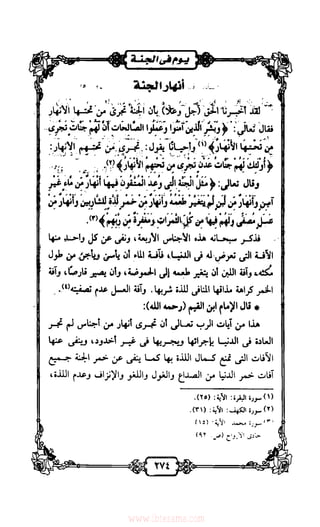 يوم في الجنة
أنهار الجنة
لقد أخبرنا الحق (جل وعلا) بأن الجنة تجري من تحتها الأنهار
فقال تعالى: ﴿وَبَشِّرِ الَّذِينَ آمَنُوا وَعَمِلُوا الصَّالِحَاتِ أَنَّ لَهُمْ جَنَّاتٍ تَجْرِي
مِن تَحْتِهَا الأَنْهَارُ﴾(١) وأحيانًا يقول: تجري من تحتهم الأنهار:
﴿أُوْلَئِكَ لَهُمْ جَنَّاتُ عَدْنٍ تَجْرِي مِن تَحْتِهِمُ الأَنْهَارُ﴾(٢).
وقال تعالى: ﴿مَثَلُ الْجَنَّةِ الَّتِي وُعِدَ الْمُتَّقُونَ فِيهَا أَنْهَارٌ مِّن مَّاءٍ غَيْرِ
آسِنٍ وَأَنْهَارٌ مِّن لَّبَنٍ لَّمْ يَتَغَيَّرْ طَعْمُهُ وَأَنْهَارٌ مِّنْ خَمْرٍ لَّذَّةٍ لِّلشَّارِبِينَ وَأَنْهَارٌ مِّنْ
عَسَلٍ مُّصَفًّى وَلَهُمْ فِيهَا مِن كُلِّ الثَّمَرَاتِ وَمَغْفِرَةٌ مِّن رَّبِّهِمْ﴾(٣).
فذكر سبحانه هذه الأجناس الأربعة، ونفى عن كل واحد منها
الآفة التي تعرض له في الدنيا، فآفة الماء أن يأسن ويأجن من طول
مكثه، وآفة اللبن أن يتغير طعمه إلى الحموضة، وأن يصير قارصًا، وآفة
الخمر كراهة مذاقها المنافي للذة شربها. وآفة العسل عدم تصفيته(٤).
* قال الإمام ابن القيم (رحمه الله):
هذا من آيات الرب تعالى أن تجري أنهار من أجناس لم تجر
العادة في الدنيا بإجرائها ويجريها في غير أخدود، وينفى عنها
الآفات التي تمنع كمال اللذة بها كما ينفي عن خمر الجنة جميع
آفات خمر الدنيا من الصداع والغول واللغو والإنزاف وعدم اللذة،
(١) سورة البقرة: الآية: (٢٥).
(٢) سورة الكهف: الآية: (٣١).
(٣) سورة محمد: الآية: (١٥)
حادي الأرواح (ص ٩٢
٢٧٤